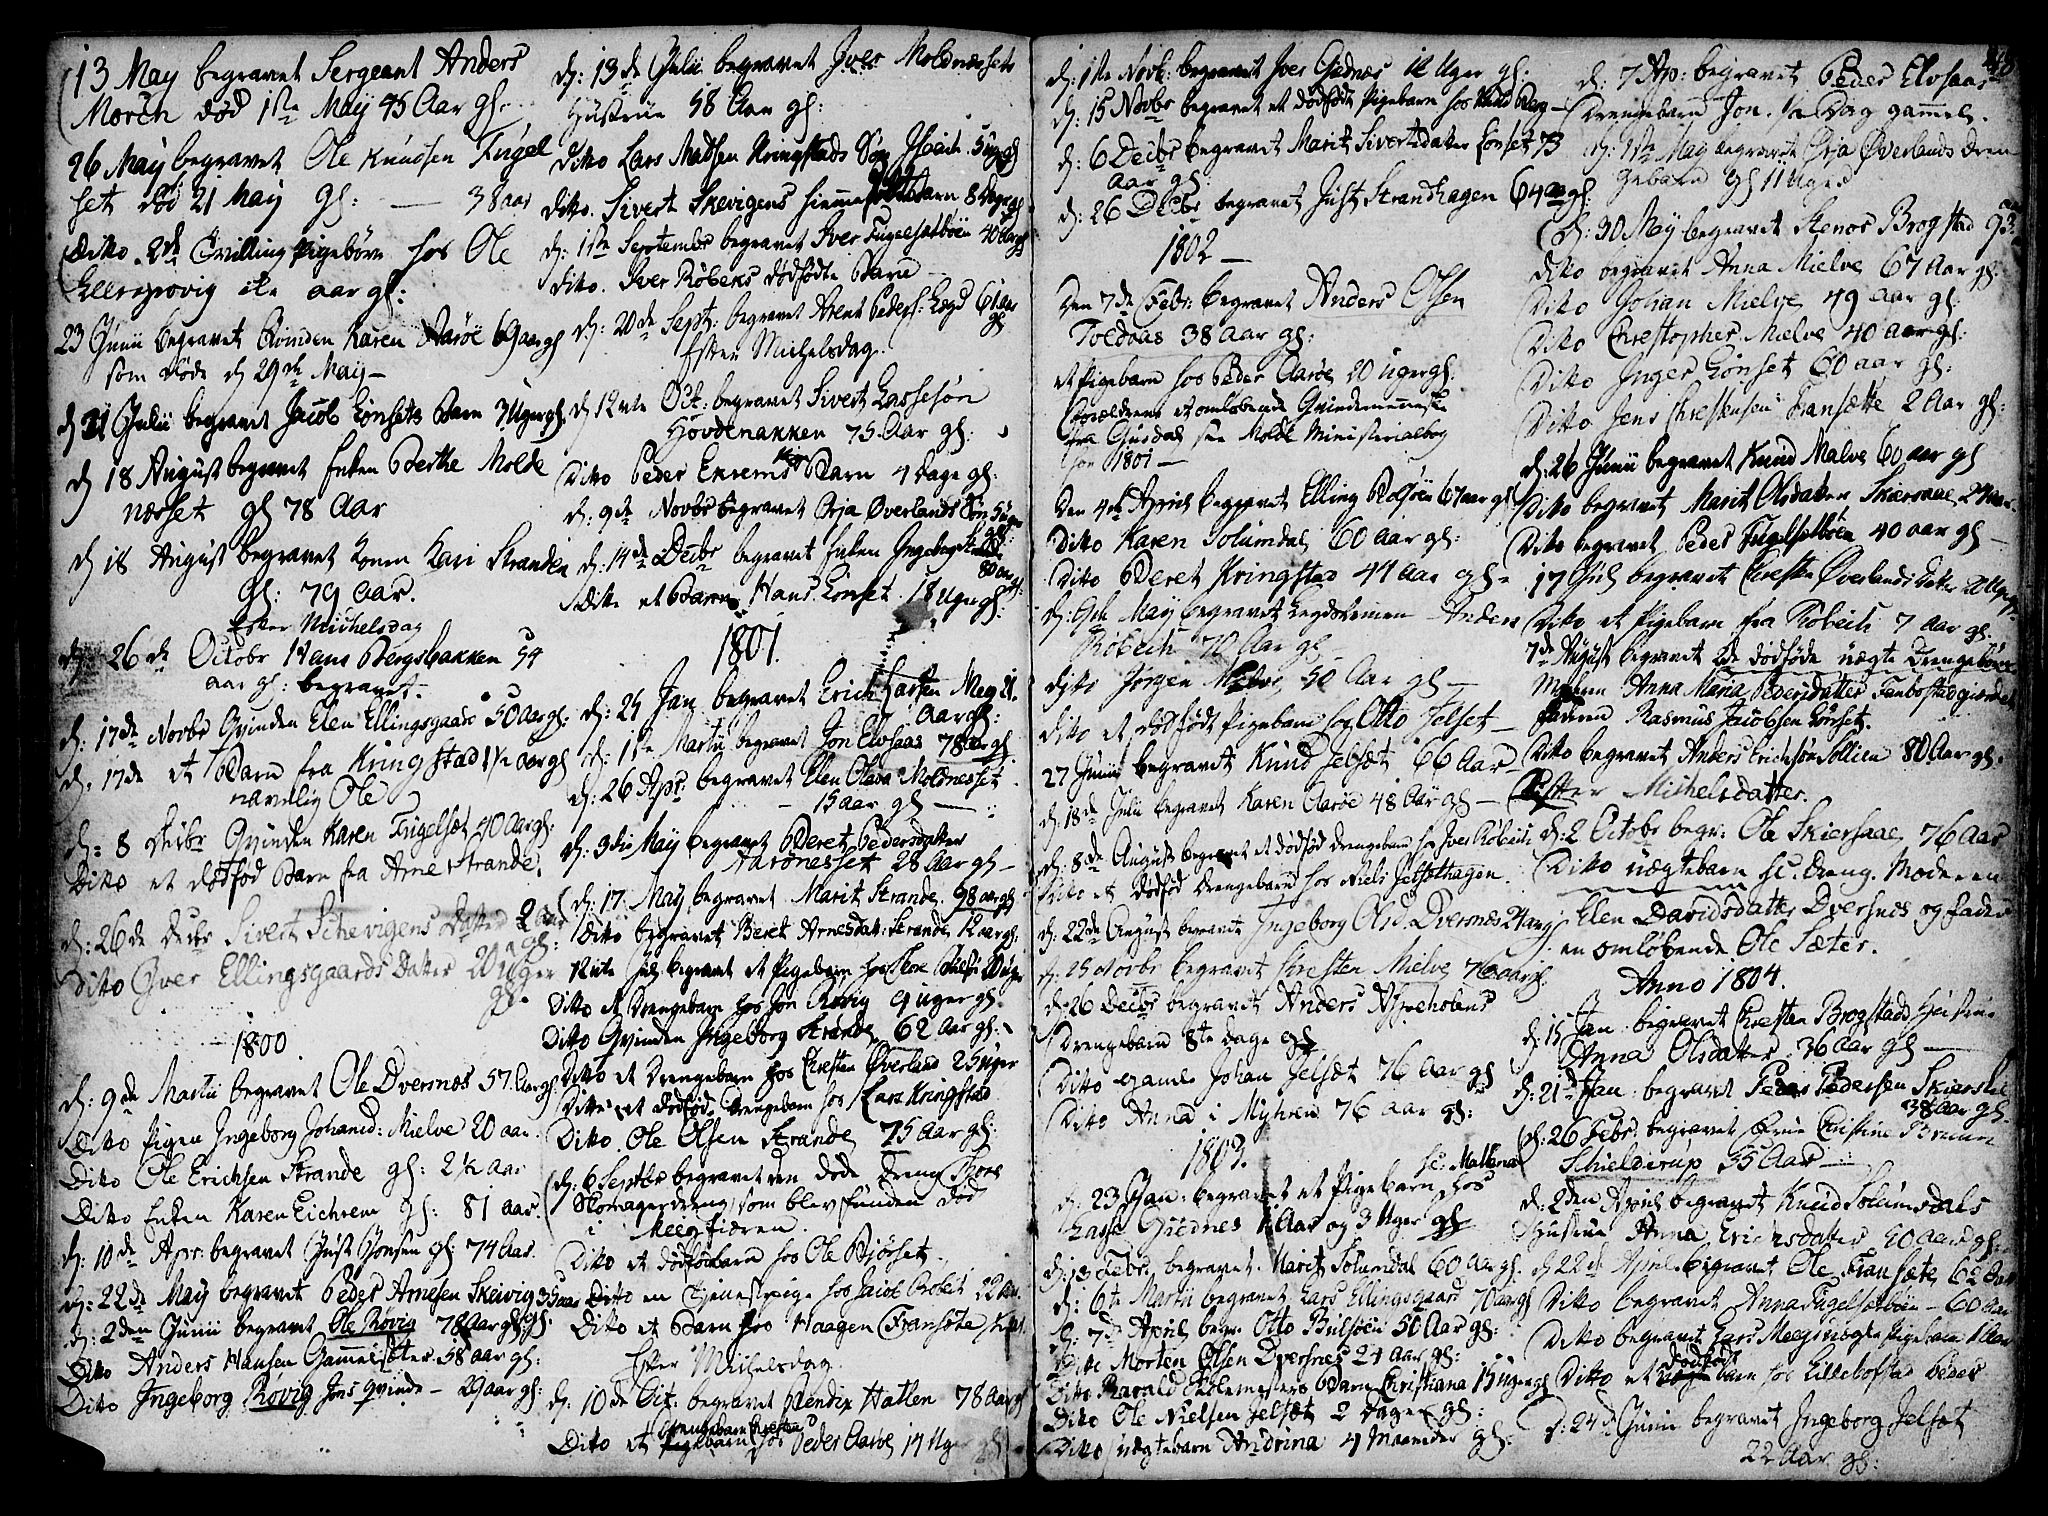 13 May begravet Sergeant Anders
Morch død 1ste May 45 Aar gl.
26 May begravet Ole Knudsen Fugel
set død 21 May gl: — 38 aar
Ditto 2de Tvilling Pigebørn hos Ole
aar gl:
23 Junii begravet Qvinden Karen Aarøe 69 aar gl
som døde d 29de May —
d 21 Julii begravet Jacob Lønsets Barn 3 Uger gl.
d 18 August begravet Enken Berthe Molde
nærset gl 78 Aar
d 18 August begravet Konen Kari Stranden
gl: 79 aar.
Efter Michelsdag
d: 26de Octobr Hans Bergsbakken 54
aar gl: begravet.
d: 17de Novbr Qvinden Elen Ellingsgaard 50 aar gl:
d: 17de et Barn fra Kringstad 1½ aar gl
navnlig Ole
d: 8 Decbr Qvinden Karen Fugelsæt 40 Aar gl:
Ditto et dødfød Barn fra Arne Strande.
d: 26de Decbr Sivert Schevigens Datter 2 aar
gl:
Ditto Iver Ellingsgaards Datter 20 Uger
gl.
1800
d: 9de Martii begravet Ole Dversnæs 57. Aar gl
Ditto Pigen Ingeborg Johansd: Mielve 20 aar.
Ditto Ole Erichsen Strande gl: 2½ aar
Ditto Enken Karen Eichrem gl: 81 aar.
d: 10de Apr: begravet Just Jonsen gl: 74 Aar.
d: 22de May begravet Peder Arnesen Skeivig 35 aar
d: 2den Junii begravet Ole Røvig 78 Aar gl.
Ditto Anders Hansen Gammelsæter 58 aar gl:
Ditto Ingeborg Røvig Jons Qvinde — 29 aar gl:
d: 13de Julii begravet Iver Moldnessets
Hustrue 58 Aar gl:
Ditto Lars Madsen Kringstads Søn
Ditto. Sivert Skevigens Barn 8 Dage gl
d: 1ste Septembr begravet Iver Fugelsetbøen 40 Aar gl
Ditto. Iver Røbeks dødfødte Barn
d: 20de Sept: begravet Peders: 61 aar
gl
Efter Michelsdag.
d 12te Oct: begravet Sivert Lassesøn
Hovdenakken 75 Aar gl:
Ditto Peder Enrems Barn 4 Dage gl:
d: 9de Novbr begravet Ørja Øverlands Søn 5 Uger
d: 14de Decbr begravet Enken Ingeborg
80 aar gl:
Ditto et Barn Hans Lønset 18 Uger gl:
1801.
d: 25 Jan begravet Erich Larsen Meg 21
Aar gl:
d: 1ste Martii begravet Jon Elvsaas 78 aar gl
d: 26 Apr: begravet Elen Olava Moldnesset
— 15 aar gl —
d: 9die May begravet Beret Pedersdatter
Aarønesset 28 Aar gl —
d: 17 May begravet Marit Strande. 98 aar gl
Ditto begravet Beret Arnesdat: Strande 12 aar gl:
12te Julj begravet et Pigebarn hos 20 Uger
Ditto et Drengebarn hos Jon Røvig 9 Uger gl.
Ditto Qvinden Ingeborg Strande 62 Aar gl:
Ditto et Drengebarn hos Christen Øverland 25 Uger
Ditto et dødfød Drengebarn hos Lars Kringstad
Ditto Ole Olsen Strande 75 Aar gl:
d: 6 Septbr begravet en død Dreng Thore
Skomagerdreng, som blev funden død
i Meegfiæren.
Ditto et dødfødbarn hos Ole Biørset
Ditto en Tienestepige hos Jacob Røbek 22 Aar.
Ditto et Barn hos Haagen Fransæte
Efter Michelsdag
d: 10de Oct: begravet Bendix Hatlen 78 Aar gl
Drengebarn Christen
Ditto et Pigebarn hos Peder Aarøe 14 Uger gl
d: 1ste Novb: begravet Iver Gudnæs 12 Uger gl:
d: 15 Novbr begravet et dødfødt Pigebarn hos Knud Berg —
d: 6 Decbr begravet Marit Sivertsdatter Lønset 73
aar gl:
d: 26 Decbr begravet Just Strandhagen 64 aar gl:
1802 —
Den 7de Febr: begravet Anders Olsen
Toldaas 38 Aar gl:
et Pigebarn hos Peder Aarøe 20 Uger gl:
Forældrene et omløbende Qvindemenneske
fra Gusdal see Molde Ministerialbog
for 1801 —
Den 4de April begravet Elling Bolsøen 67 aar gl
Ditto Karen Solumdal 60 aar gl:
Ditto Beret Kringstad 41 Aar gl
d: 9de May begravet Legdslemen Anders
Røbech 70 Aar gl —
Ditto Jørgen Mælve 50 Aar gl —
Ditto et dødfødt Pigebarn hos Otto Jelset —
27 Junii begravet Knud Jelsæt 66 Aar
d: 18de Julii begravet Karen Aarøe 48 Aar gl —
d: 8de August begravet et dødfød Drengebarn hos Iver Røbech
Ditto et dødfød Drengebarn hos Niels Jelsethagen.
d: 22de August begravet Ingeborg Olsd. Dversnæs 24 aar
d: 25 Novbr begravet Christen Mielve 76 aar gl.
d: 26 Decbr begravet Anders Aspeholens
Drengebarn 8te dage gl
Ditto gamle Johan Jelsæt 76 Aar gl
Ditto Anna i Myhren 76 aar gl:
1803.
sc: Mallena
d: 23 Jan: begravet et Pigebarn hos
Lasse Gudnes 1 Aar og 3 Uger gl
d: 13 Febr. begravet. Marit Solumdal 60 aar gl:
d: 6te Martii begravet Lars Ellingsgaard 70 aar gl
d: 7de April begr. Otto Bulsøen 50 Aar gl:
Ditto Morten Olsen Dversnes 24 aar gl:
Ditto Barald Skolemesters Barn Christiana 15 uger gl
Ditto Ole Nielsen Jelsæt 2 Dage gl:
Ditto Uægtebarn Andrina 4 Maaneder gl:
d: 7 Ap: begravet Peder Elvsaas
Drengebarn Jon. ½ Dag gammel.
d: 1ste May begravet Ørja Øverlands Dren
gebarn gl 11 Uger
d: 30 May begravet Stenor Brogstad 93
Ditto begravet Anna Mielve 67 Aar gl:
Ditto Johan Mielve 49 aar gl.
Ditto Christopher Mælve 40 aar gl:
Ditto Inger Lønset 60 aar gl:
Ditto Jens Christensen Fransætte 2 Aar gl:
d: 26 Junii begravet Knud Malve 60 aar gl
Ditto begravet Marit Olsdatter Skiersaae 24 aar
Ditto begravet Peder Fugelsetbøen 40 aar gl —
17 Julj begravet Christen Øverlands Datter 20 Uger gl.
Ditto et Pigebarn fra Røbech 7 aar gl.
7de August begravet 2de dødføde uægte Drengebørn
Moderen Anna Maria Pedersdatter Fanbostadgierdet
Faderen Rasmus Jacobsen Lønset.
Ditto begravet Anders Erichsøn Sollien 80 Aar gl.
Efter Michelsdatter.
d: 2 Octobr begr: Ole Skiersaae 76 Aar
Ditto uægtebarn sc. Dreng. Moderen
Elen Davidsdatter Dversnes og Fader
en omløbende Ole Sæter.
Anno 1804.
d: 15 Jan begravet Christen Brogstads Hustrue
Anna Olsdatter 36 aar gl —
d: 21de Jan: begravet Peder Pedersen Skiersaae
38 Aar gl.
d: 26 Febr. begravet Frue Christine Bruun
Schielderup 55 Aar —
d: 2den April begravet Knud Solumsdals
Hustrue Anna Erichsdatter 60 Aar gl:
d 22de April begravet Ole Fransæte 62 Aar
Ditto begravet Anna Fugelsetbøen — 60 Aar
Ditto begravet Lars Meegs uægte Pigebarn 1 Aar
dødfødt
Ditto et barn hos Lillebostad Peder
d: 24de Junii begravet Ingeborg Jelset
22 Aar gl: